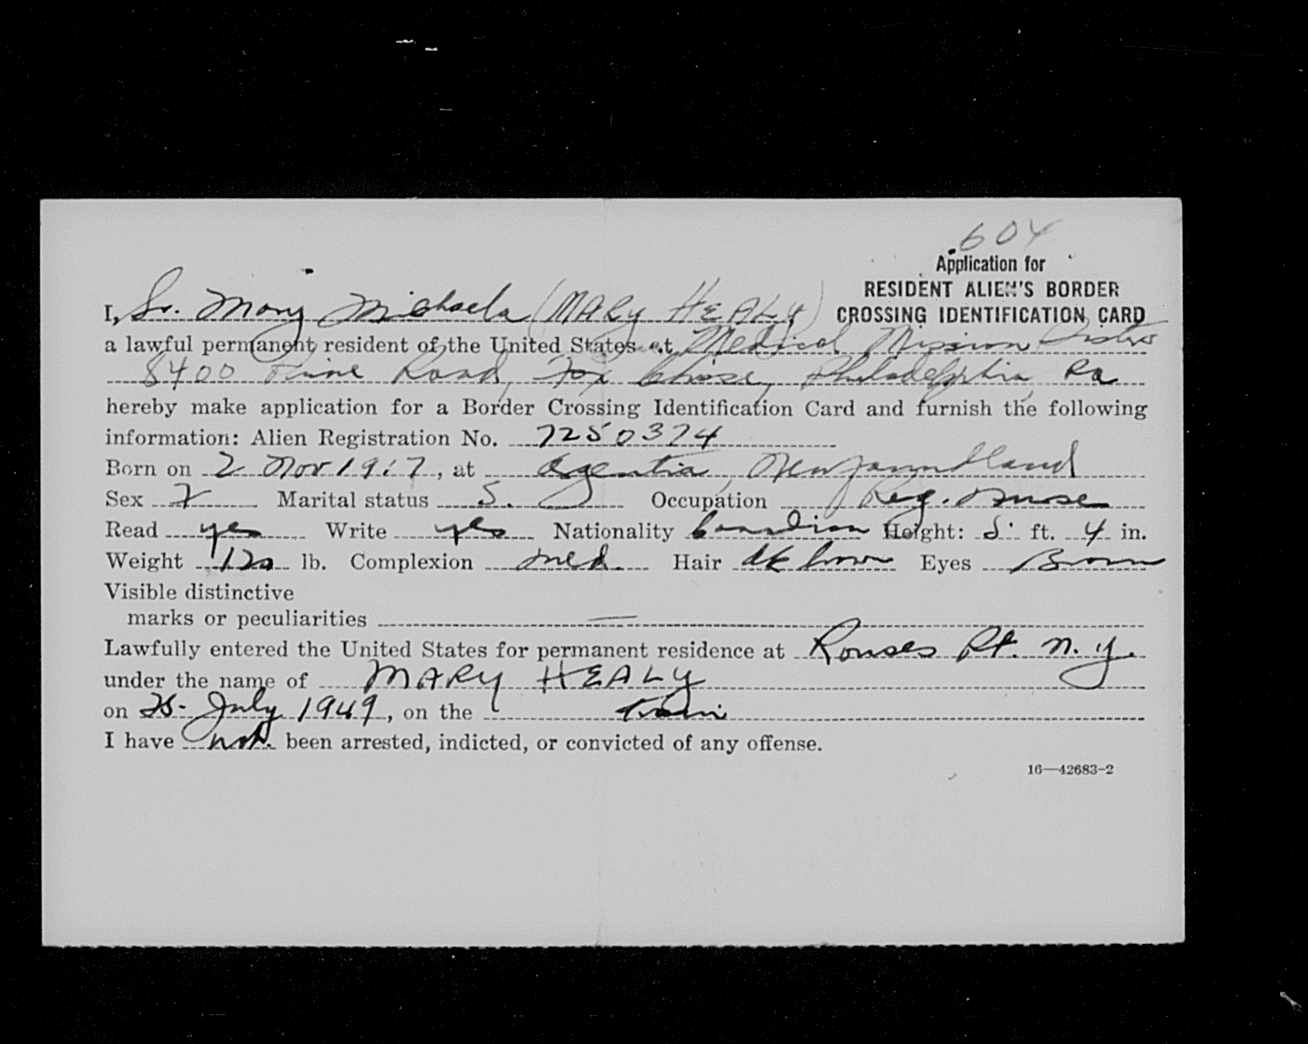 604
Application for
RESIDENT ALIEN'S BORDER
CROSSING IDENTIFICATION CARD
I, Sr. Mary Michaela (MARY HEALY)
a lawful permanent resident of the United States at Medical Mission Sisters
8400 Pine Road, Fox Chase, Philadelphia, Pa
hereby make application for a Border Crossing Identification Card and furnish the following
information: Alien Registration No. 7250374
Born on 2 Nov 1917, at Argentia, Newfoundland
Sex F Marital status S. Occupation Reg. Nurse
Read yes Write yes Nationality Canadian Height: 5 ft. 4 in.
Weight 120 lb. Complexion med. Hair dk brown Eyes Brown
Visible distinctive
marks or peculiarities —
Lawfully entered the United States for permanent residence at Rouses Pt. N.Y.
under the name of MARY HEALY
on 25 July 1949, on the train
I have not been arrested, indicted, or convicted of any offense.
16—42683-2